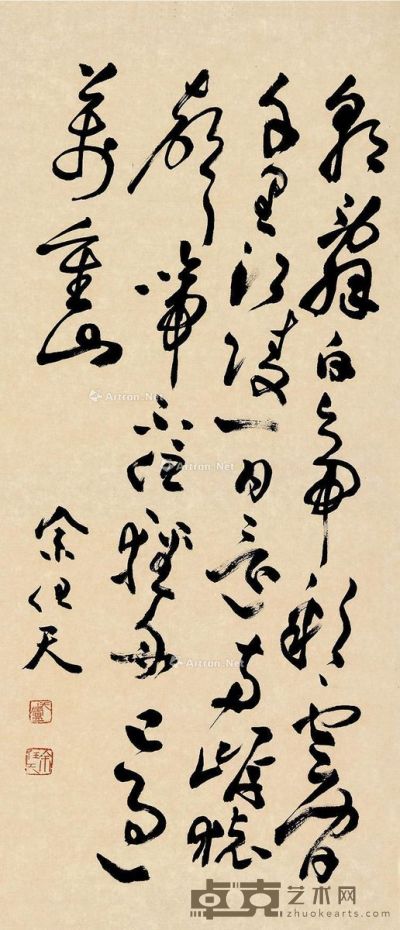 朝辭白帝彩雲間
千里江陵一日還兩岸猿
聲啼不住輕舟已過
萬重山
余任天
Artron.Net
Artron.Net
Artron.Net
Artron.Net
卓克艺术网
zhuokearts.com